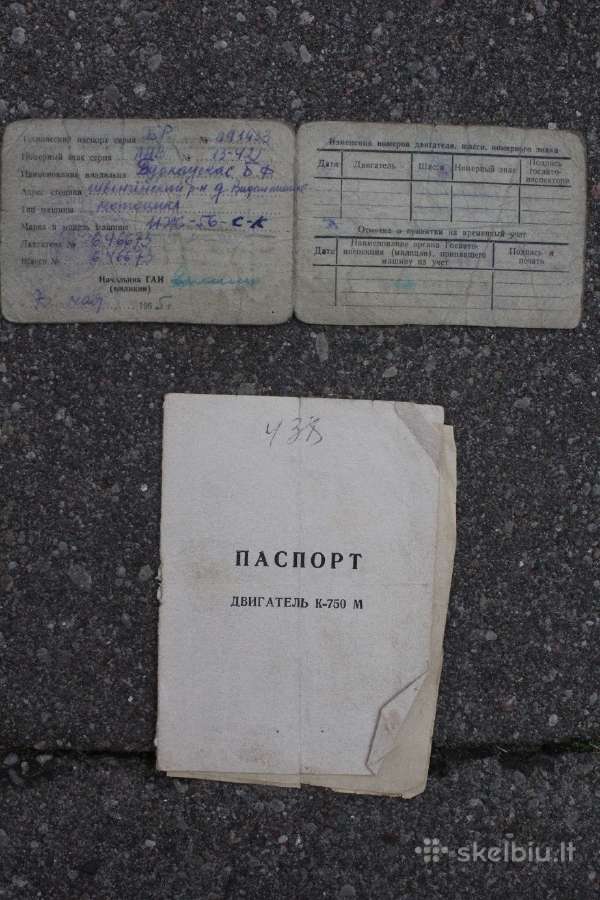 Технический паспорт серия БР № 091433
Номерный знак серия № 15-432
Наименование владельца Б. Ф.
Адрес стоянки р-н д.
Тип машины мотоцикл
Марка и модель машины ИЖ-56-С-К
Двигатель № 646673
Шасси № 646673
Начальник ГАИ
(милиции)
7 мая 1965 г.
Изменения номеров двигателя, шасси, номерного знака
Дата Двигатель Шасси Номерный знак Подпись госавто-инспектора
Отметка о принятии на временный учет
Дата Наименование органа Госавто-инспекции (милиции), принявшего машину на учет Подпись и печать
438
ПАСПОРТ
ДВИГАТЕЛЬ К-750 М
skelbiu.lt